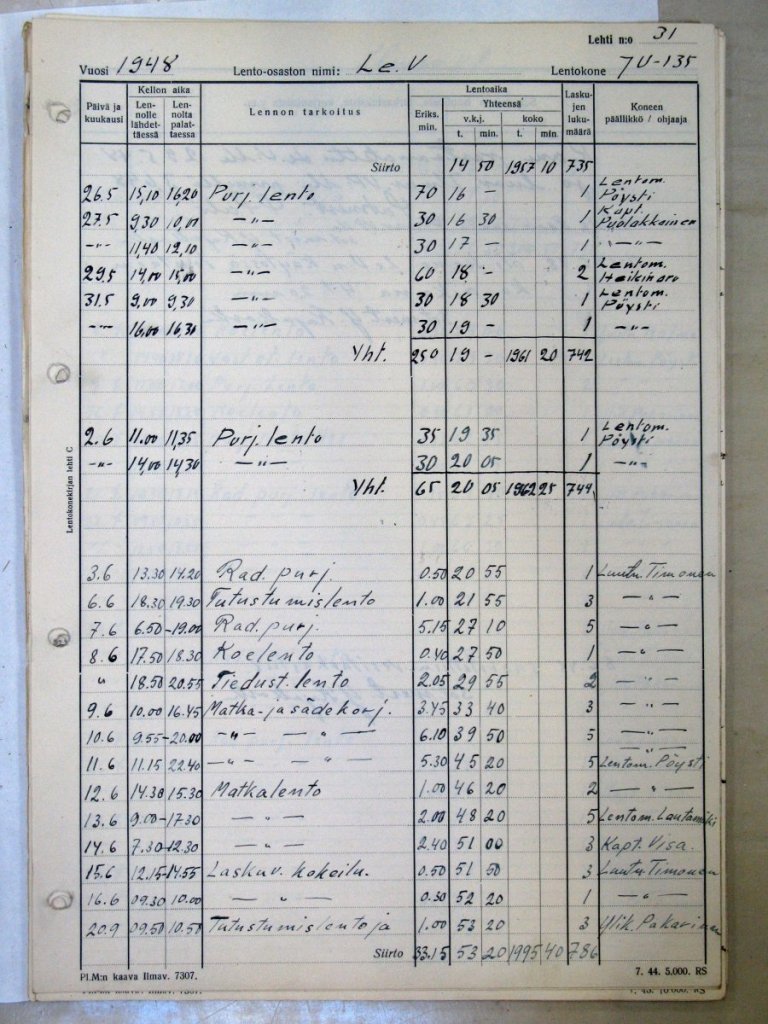 Lehti n:o 31
Vuosi 1948 Lento-osaston nimi: Le.V Lentokone JU-135
Päivä ja kuukausi Kellon aika Lennolle lähdettäessä Lennolta palattaessa Lennon tarkoitus Lentoaika Eriks. min. Yhteensä v.k.j. t. min. koko t. min. Laskujen lukumäärä Koneen päällikkö / ohjaaja
Siirto 14 50 1957 10 735
26.5 15,10 16,20 Purj. lento 70 16 — 1 Lentom. Pöysti
27.5 9,30 10,00 —"— 30 16 30 1 Kapt. Puolakkainen
—"— 11,40 12,10 —"— 30 17 — 1 —"—"—
29,5 14,00 15,00 —"— 60 18 — 2 Lentom. Heikinaro
31.5 9,00 9,30 —"— 30 18 30 1 Lentom. Pöysti
—"— 16,00 16,30 —"— 30 19 — 1 —"—
Yht. 250 19 — 1961 20 742
2.6 11.00 11,35 Purj. lento 35 19 35 1 Lentom. Pöysti
—"— 14,00 14,30 —"— 30 20 05 1 —"—
Yht. 65 20 05 1962 25 744
3.6 13.30 14.20 Rad. purj. 0.50 20 55 1 Lautn. Timonen
6.6 18.30 19.30 Tutustumislento 1.00 21 55 3 —"—
7.6 6.50 –19.00 Rad. purj. 5.15 27 10 5 —"—
8.6 17.50 18.30 Koelento 0.40 27 50 1 —"—
" 18.50 20.55 Tiedust. lento 2.05 29 55 2 —"—
9.6 10.00 16.45 Matka- ja sädekorj. 3.45 33 40 3 —"—
10.6 9.55 –20.00 —"— —"— 6.10 39 50 5 —"—
11.6 11.15 22.40 —"— —"— 5.30 45 20 5 Lentom. Pöysti
12.6 14.30 15.30 Matkalento 1.00 46 20 2 —"—
13.6 9.00 –17.30 —"— 2.00 48 20 5 Lentom. Lautamäki
14.6 7.30 –12.30 —"— 2.40 51 00 3 Kapt. Visa.
15.6 12.15 –14.55 Laskuv. kokeilu. 0.50 51 50 3 Lautn. Timonen
16.6 09.30 10.00 —"— 0.30 52 20 1 —"—
20.9 09.50 10.50 Tutustumislentoja 1.00 53 20 3 Ylik. Pakarinen
Siirto 33.15 53 20 1995 40 786
Lentokonekirjan lehti C
Pl.M:n kaava Ilmav. 7307. 7. 44. 5.000. RS